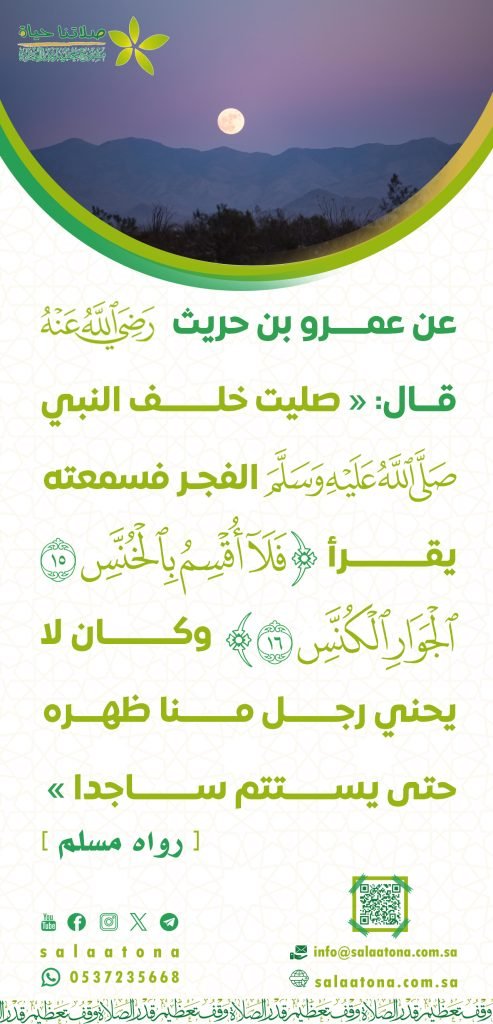 صلاتنا حياة
عن عمرو بن حريث رَضِيَ اللَّهُ عَنْهُ
قال: « صليت خلف النبي
صَلَّى اللَّهُ عَلَيْهِ وَسَلَّمَ الفجر فسمعته
يقرأ ﴿ فَلَآ أُقْسِمُ بِالْخُنَّسِ ١٥
الْجَوَارِ الْكُنَّسِ ١٦ ﴾ وكان لا
يحني رجل منا ظهره
حتى يستتم ساجدا »
[ رواه مسلم ]
You Tube
salaatona
0537235668
info@salaatona.com.sa
salaatona.com.sa
وقف تعظيم قدر الصلاة وقف تعظيم قدر الصلاة وقف تعظيم قدر الصلاة وقف تعظيم قدر